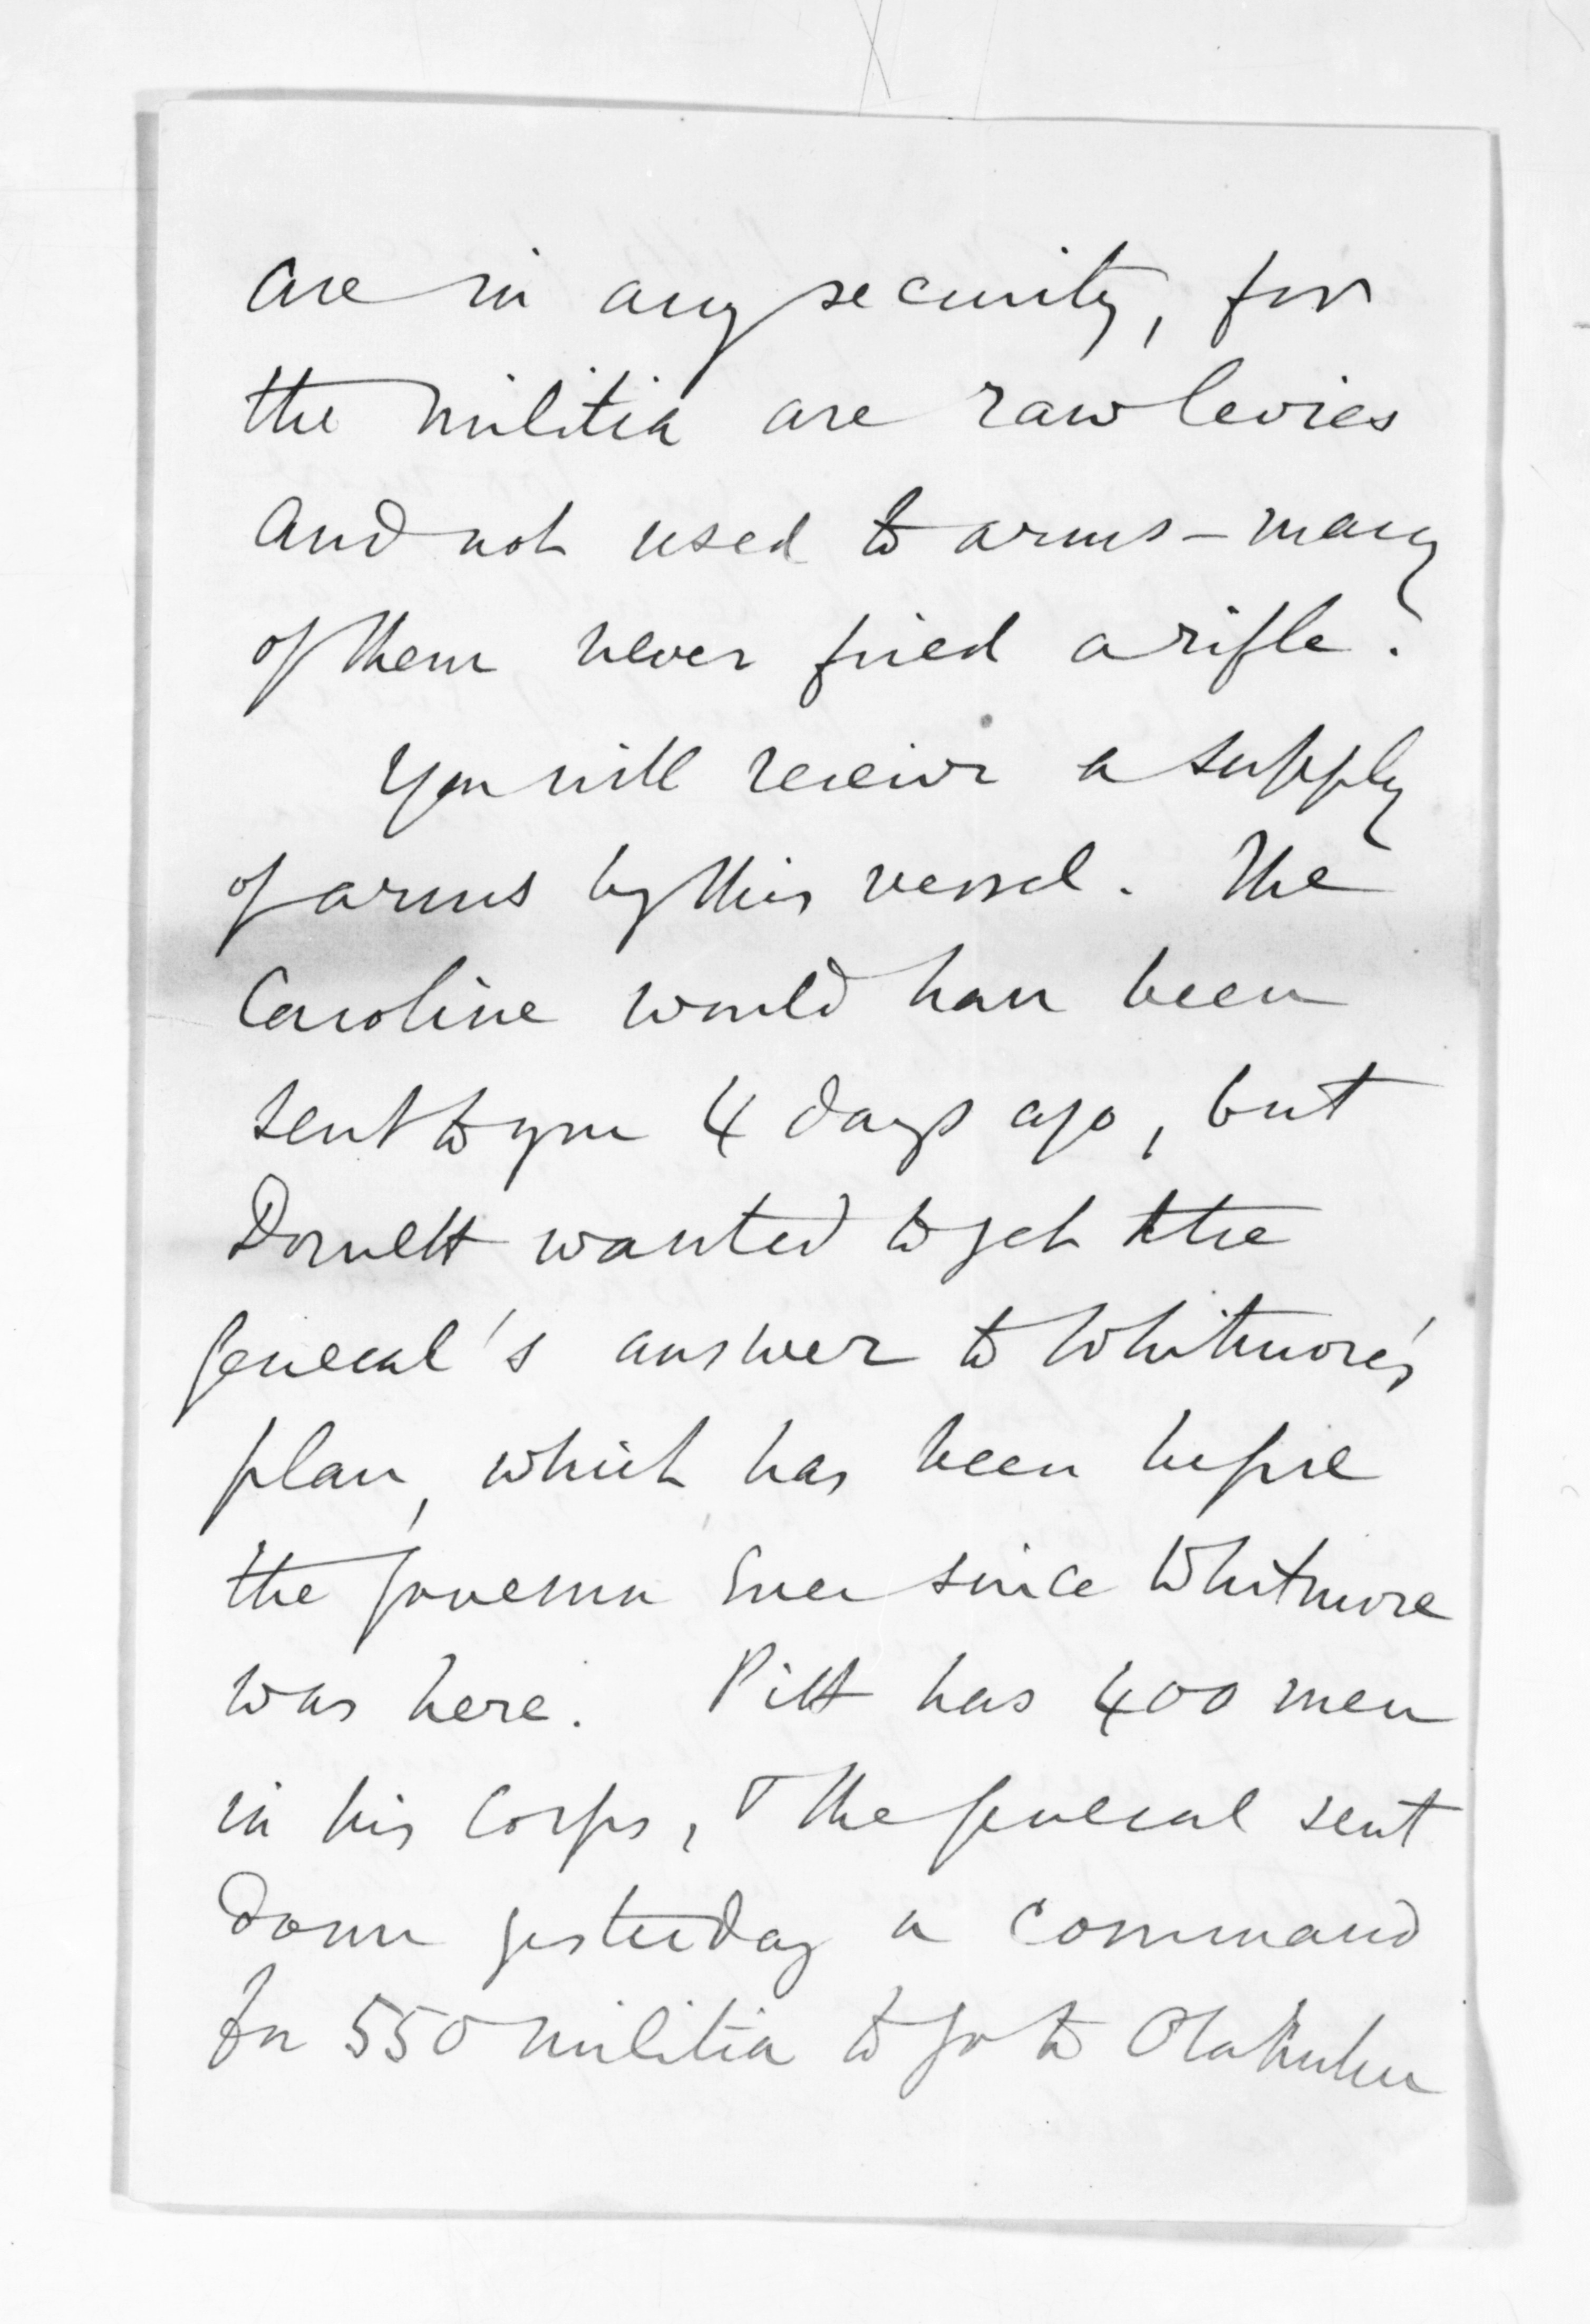 are in any security, for
the militia are raw levies
and not used to arms – many
of them never fired a rifle.
You will receive a supply
of arms by this vessel. The
Caroline would have been
sent to you 4 days ago, but
Domett wanted to get the
General's answer to Whitmore's
plan, which has been before
the Governor ever since Whitmore
was here. Pitt has 400 men
in his Corps, & the General sent
down yesterday a command
for 550 militia to go to Otahuhu